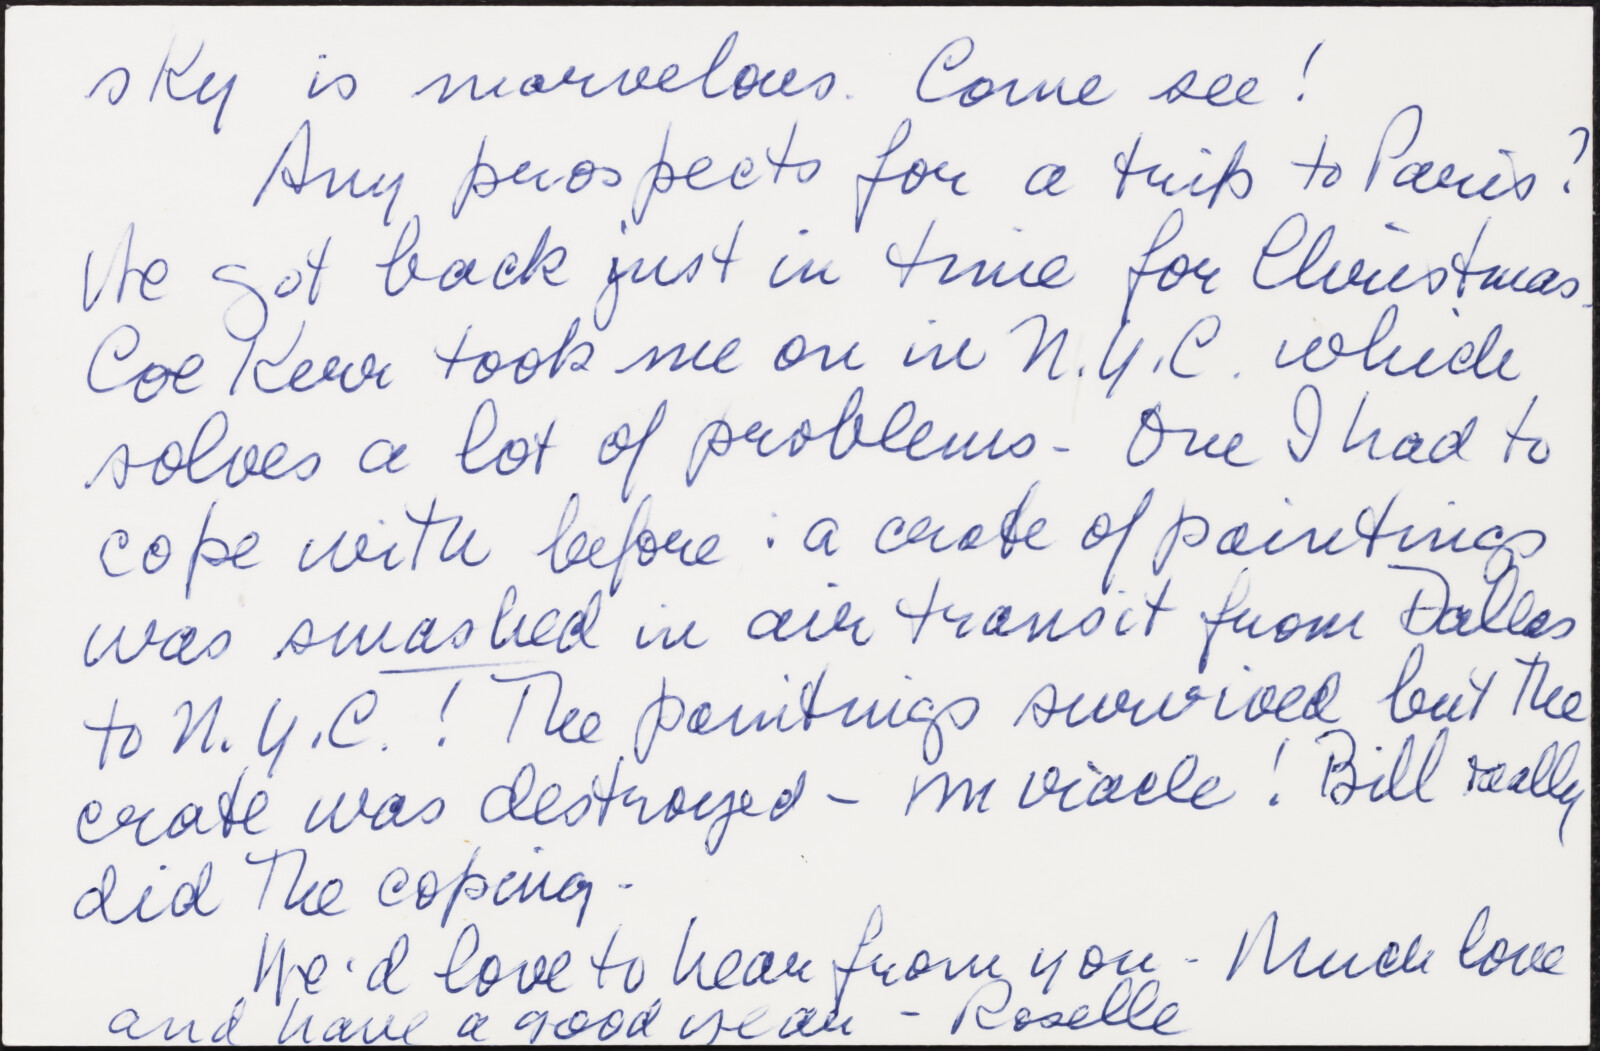 sky is marvelous. Come see!
Any prospects for a trip to Paris?
We got back just in time for Christmas.
Coe Kerr took me on in N.Y.C. which
solves a lot of problems - One I had to
cope with before : a crate of paintings
was smashed in air transit from Dallas
to N.Y.C. ! The paintings survived but the
crate was destroyed - miracle ! Bill really
did the coping -
We'd love to hear from you - Much love
and have a good year - Roselle